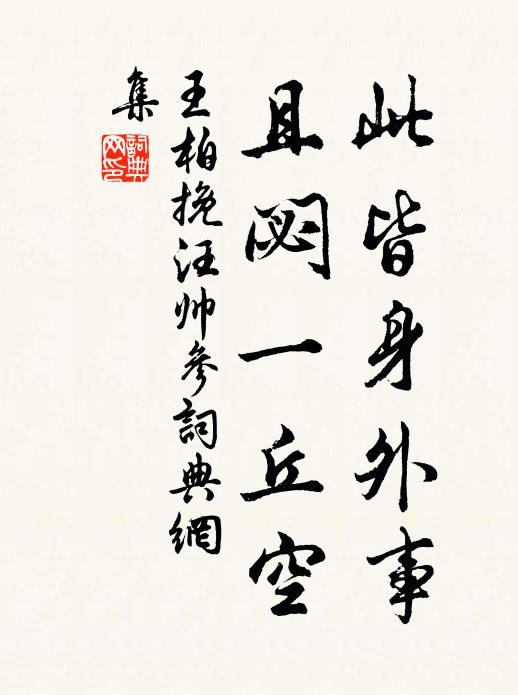 此皆身外事
且閟一丘空
王柏挽汪帅參詞典網
集
詞典網印